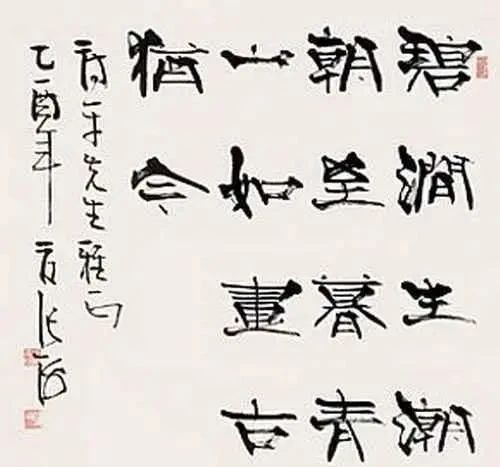 碧澗生潮
朝至暮青
山如畫古
猶今
平先生雅正
乙酉年張海